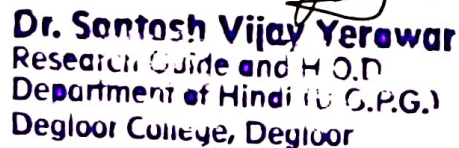 Dr. Santosh Vijay Yerawar
Research Guide and H.O.D
Department of Hindi (U.G.P.G.)
Degloor College, Degloor